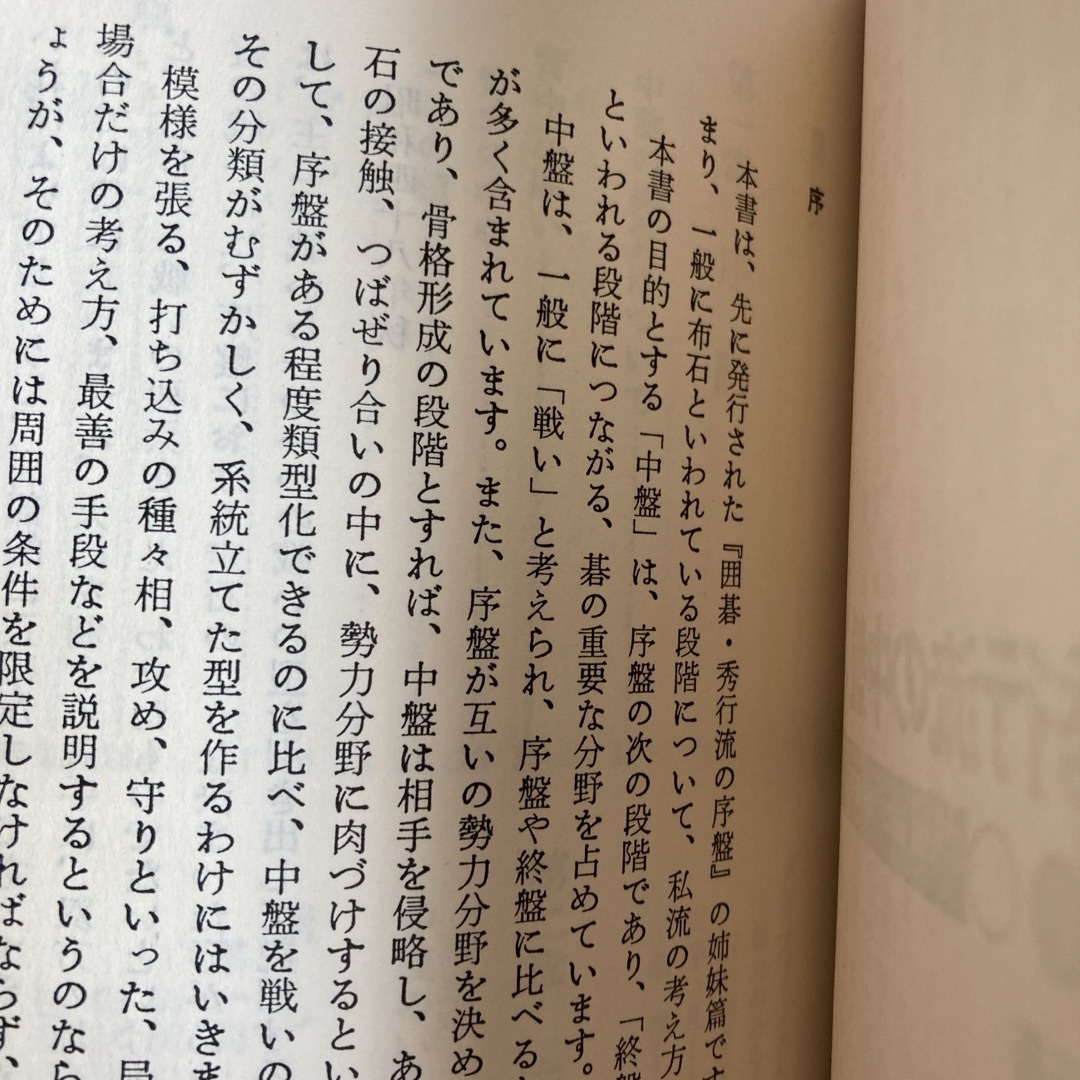 序
本書は、先に発行された『囲碁・秀行流の序盤』の姉妹篇です
まり、一般に布石といわれている段階について、私流の考え方
本書の目的とする「中盤」は、序盤の次の段階であり、「終盤
といわれる段階につながる、碁の重要な分野を占めています。
中盤は、一般に「戦い」と考えられ、序盤や終盤に比べる
が多く含まれています。また、序盤が互いの勢力分野を決め
であり、骨格形成の段階とすれば、中盤は相手を侵略し、あ
石の接触、つばぜり合いの中に、勢力分野に肉づけするとい
して、序盤がある程度類型化できるのに比べ、中盤を戦いの
その分類がむずかしく、系統立てた型を作るわけにはいきま
模様を張る、打ち込みの種々相、攻め、守りといった、局
場合だけの考え方、最善の手段などを説明するというのなら
ょうが、そのためには周囲の条件を限定しなければならず、